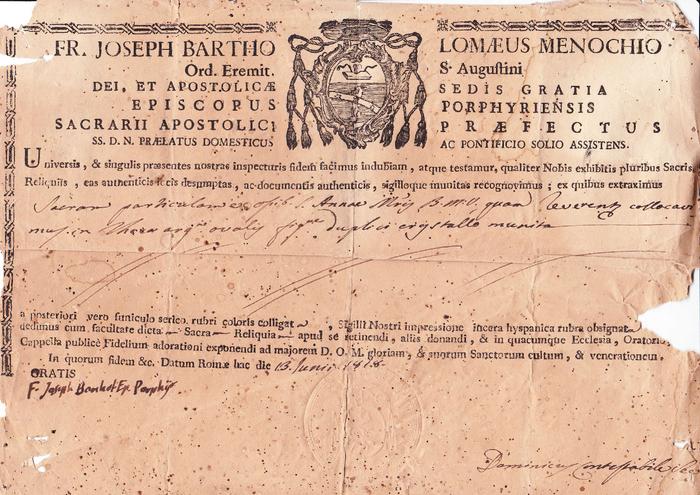 FR. JOSEPH BARTHO LOMÆUS MENOCHIO
Ord. Eremit. S. Augustini
DEI, ET APOSTOLICÆ SEDIS GRATIA
EPISCOPUS PORPHYRIENSIS
SACRARII APOSTOLICI PRÆFECTUS
SS. D. N. PRÆLATUS DOMESTICUS AC PONTIFICIO SOLIO ASSISTENS.
Universis, & singulis præsentes nostras inspecturis fidem facimus indubiam, atque testamur, qualiter Nobis exhibitis pluribus Sacris
Reliquiis, eas authenticis locis desumptas, ac documentis authenticis, sigilloque munitas recognovimus; ex quibus extraximus
Sacram particulam ex ossib. S. Annæ Mris B.M.V. quam reverenter collocavi
mus in Theca arg. ovalis fig. duplici crystallo munita
a posteriori vero funiculo serico rubri coloris colligat , Sigilli Nostri impressione in cera hyspanica rubra obsignat
dedimus cum facultate dicta Sacra Reliquia apud se retinendi, aliis donandi, & in quacumque Ecclesia, Oratorio,
Cappella publicè Fidelium adorationi exponendi ad majorem D. O. M. gloriam, & suorum Sanctorum cultum, & venerationem,
In quorum fidem &c. Datum Romæ hac die 13. Junii 1818.
GRATIS
F. Joseph Barthol Ep. Porphyr
Dominicus